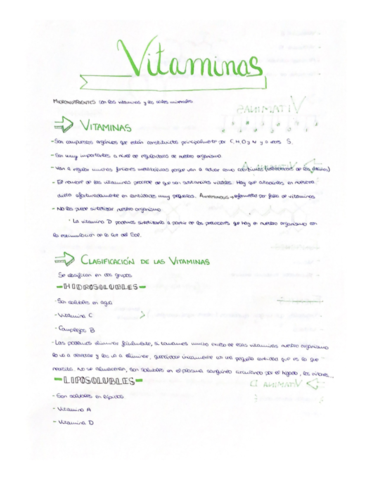 Vitaminas
MICRONUTRIENTES son las vitaminas y las sales minerales
VITAMINAS
- Son compuestos orgánicos que están constituidos principalmente por C, H, O y N y a veces S.
- Son muy importantes a nivel de reguladores de nuestro organismo
- Van a regular muchos procesos metabólicos porque van a actuar como
- El nombre de las vitaminas procede de que son sustancias vitales. Hay que
diaria afortunadamente en cantidades muy pequeñas. Avitaminosis → enfermedad por falta de vitaminas
- No las puede sintetizar nuestro organismo
- La vitamina D podemos sintetizarla a partir de los precursores que hay en nuestro organismo con
la estimulación de la luz del Sol.
CLASIFICACIÓN DE LAS VITAMINAS
Se clasifican en dos grupos
- HIDROSOLUBLES -
- Son solubles en agua
- Vitamina C
- Complejo B
- Las podemos eliminar fácilmente, si tomamos mucho exceso de estas vitaminas nuestro organismo
lo va a detectar y las va a eliminar, quedándose únicamente con una pequeña cantidad que es lo que
necesita. No se almacenan, son solubles en el plasma sanguíneo circulando por el hígado, los riñones...
- LIPOSOLUBLES -
- Son solubles en lípidos
- Vitamina A
- Vitamina D